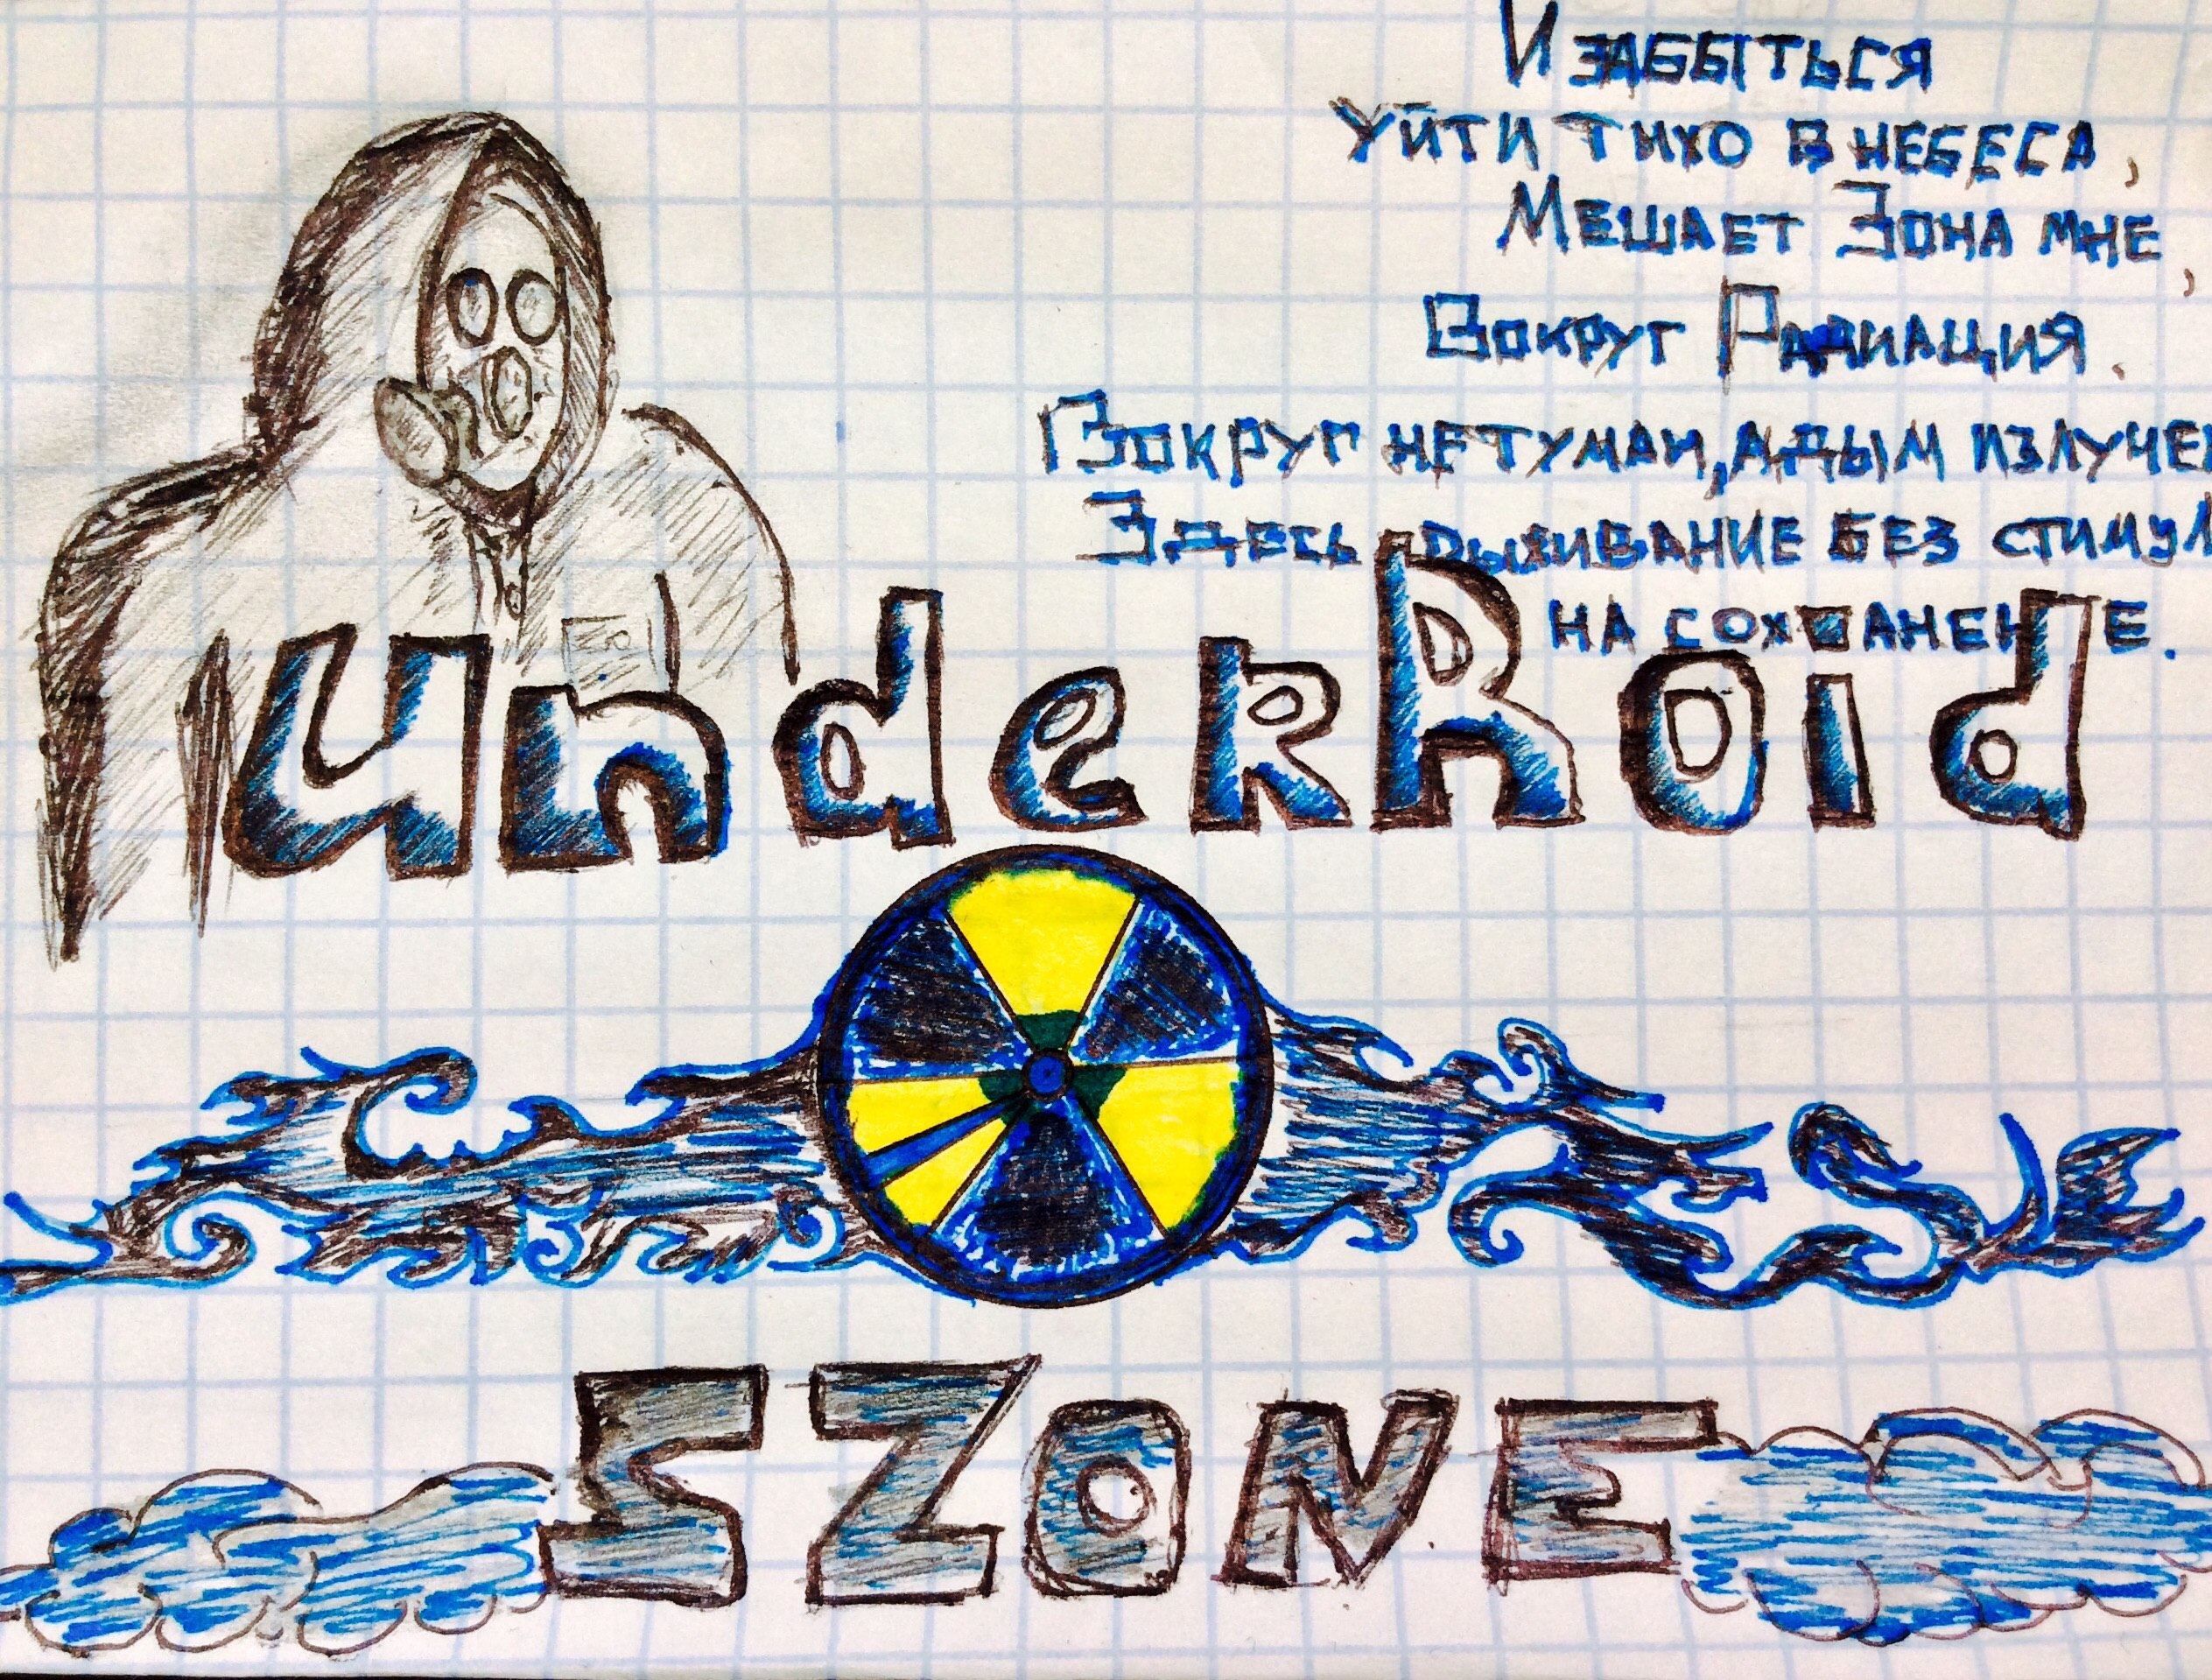 И забыться
Уйти тихо в небеса,
Мешает Зона мне,
Вокруг Радиация.
Вокруг не туман, а дым излучен
Здесь выживание без стимул
на сохранение.
underRoid
SZONE